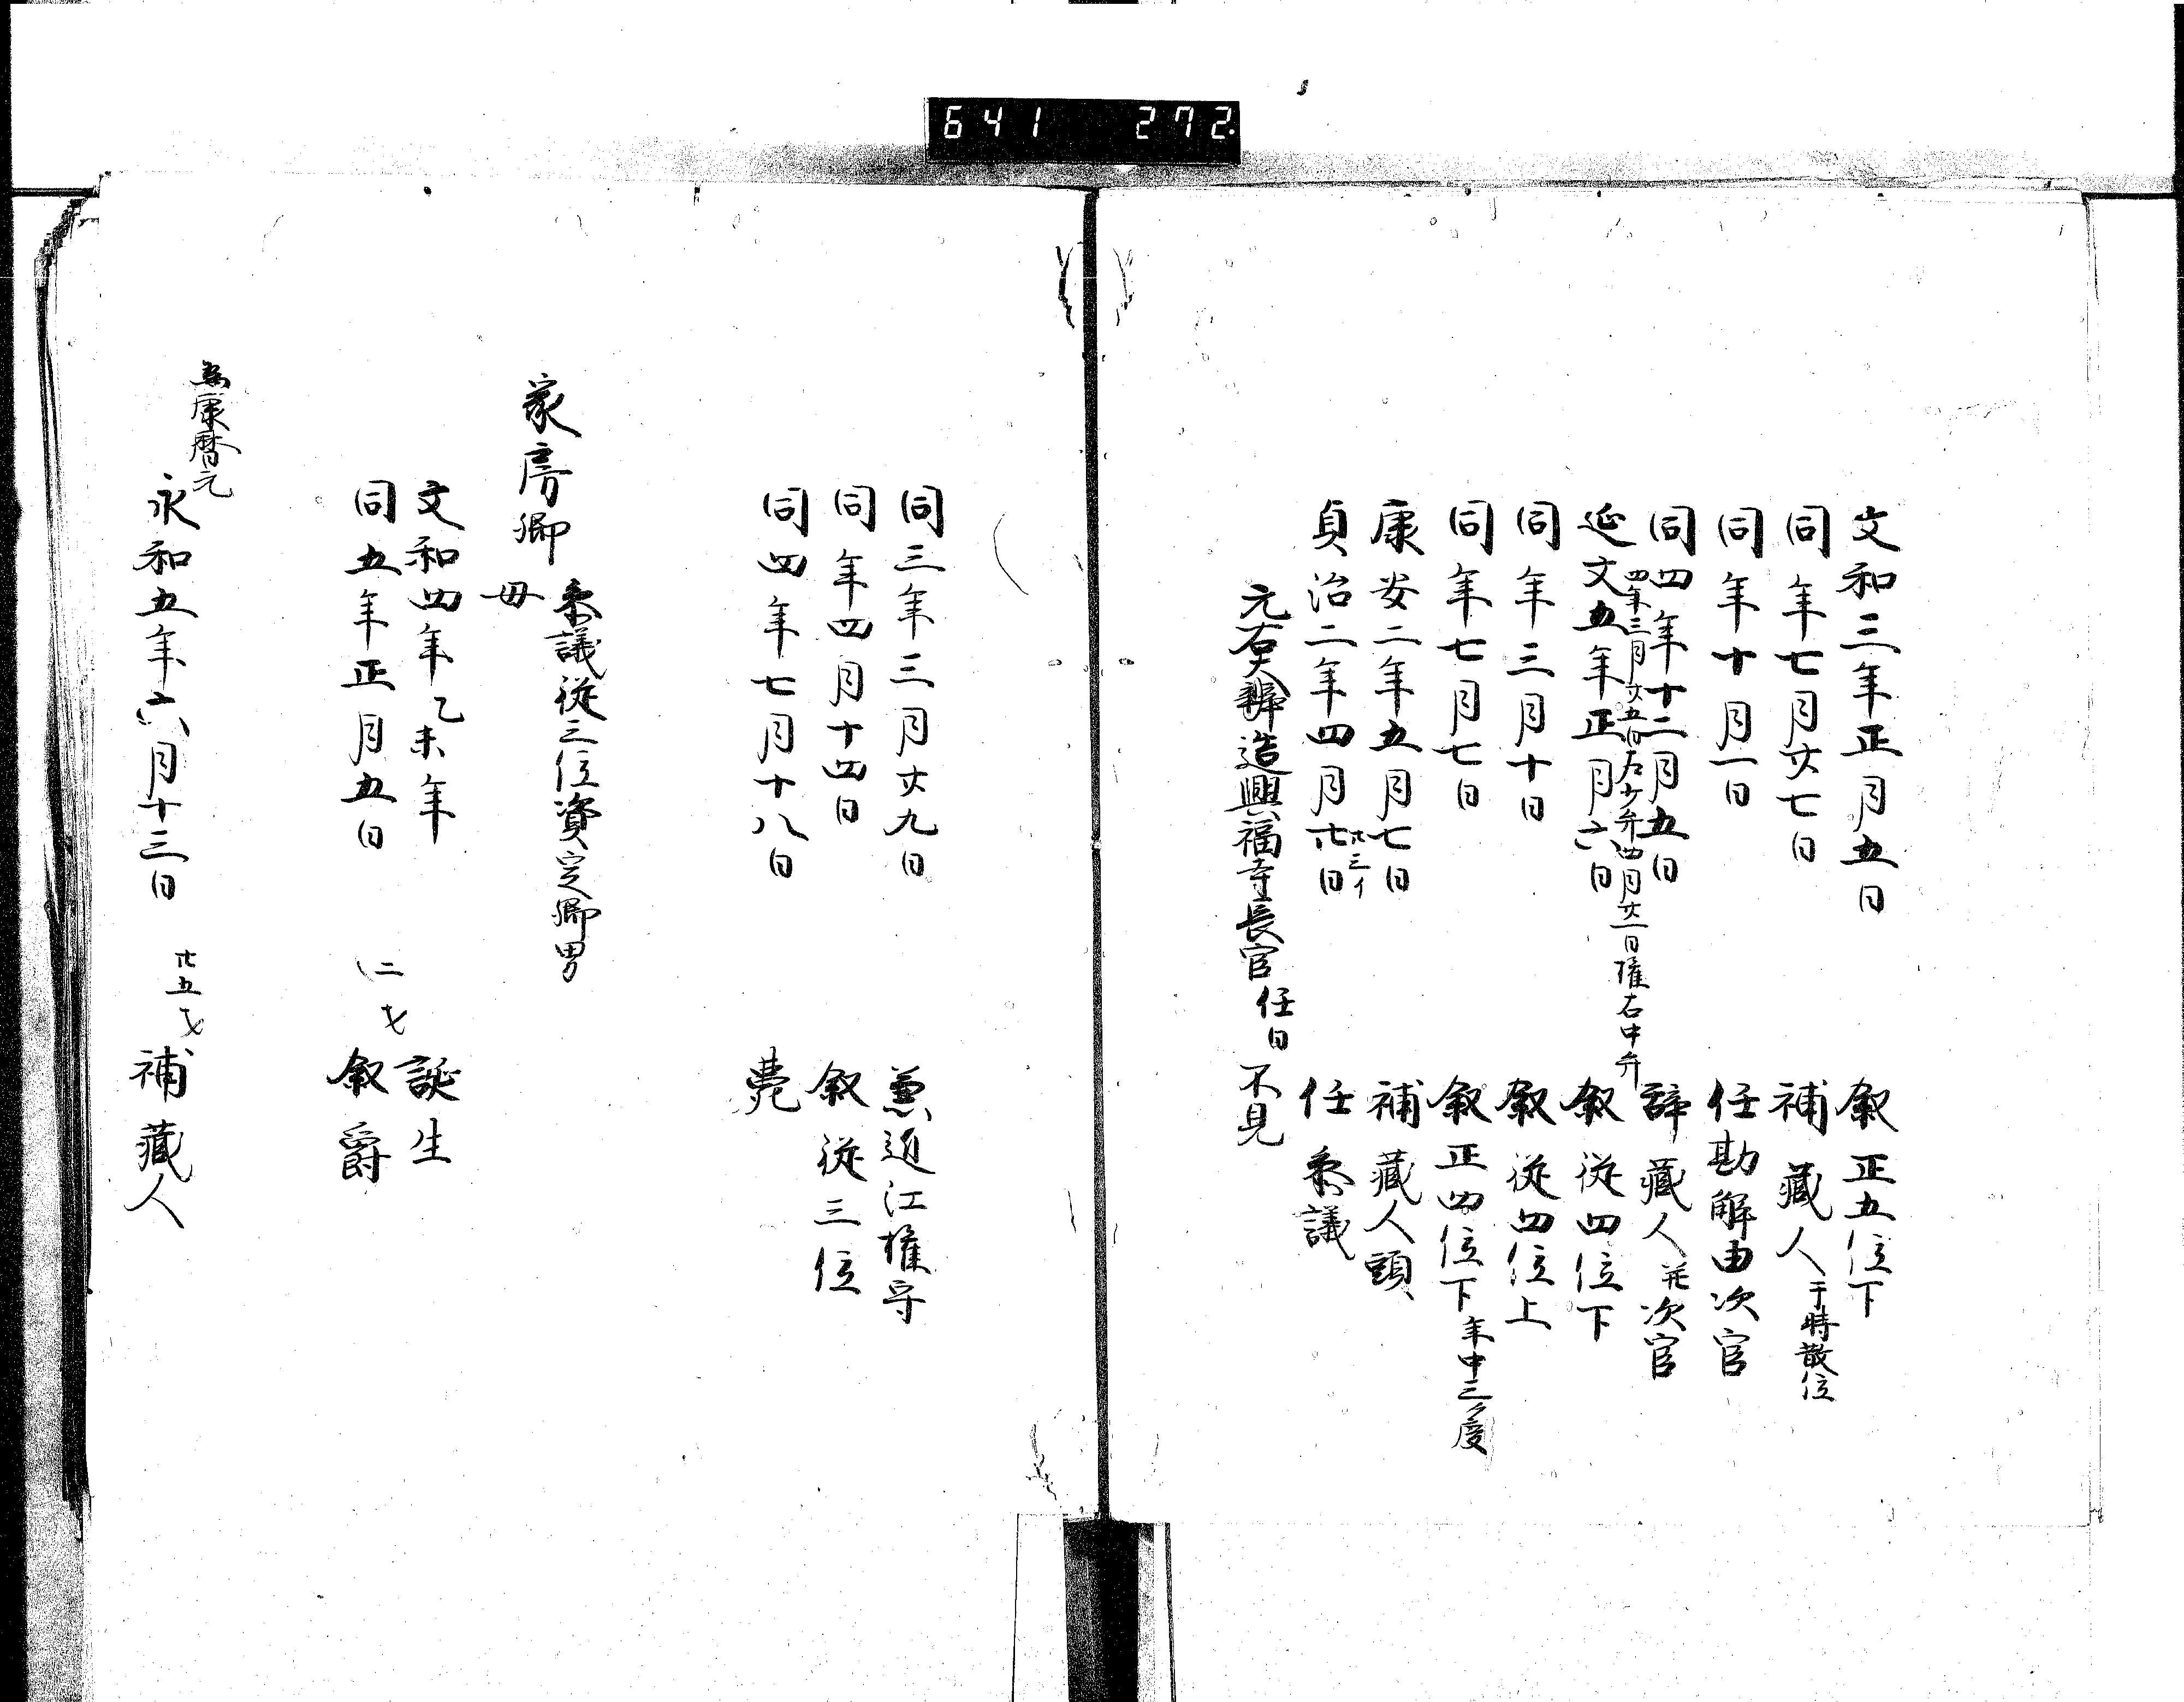 641 272.
文和三年正月五日 叙正五位下
同年七月廿七日 補蔵人 于時散位
同年十月一日 任勘解由次官
同四年十二月五日 辞蔵人并次官
四年三月廿五日右少弁四月廿一日権右中弁
延文五年正月六日 叙従四位下
同年三月十日 叙従四位上
同年七月七日 叙正四位下 年中三ケ度
康安二年五月七日 補蔵人頭
廿三イ
貞治二年四月廿日 任参議
元右大辨造興福寺長官 任日不見
同三年三月廿九日 兼近江権守
同年四月十四日 叙従三位
同四年七月十八日 薨
家房卿
参議従三位資定卿男
母
文和四年乙未年 誕生
同五年正月五日 二才 叙爵
為康暦元
永和五年六月十三日 廿五才 補蔵人